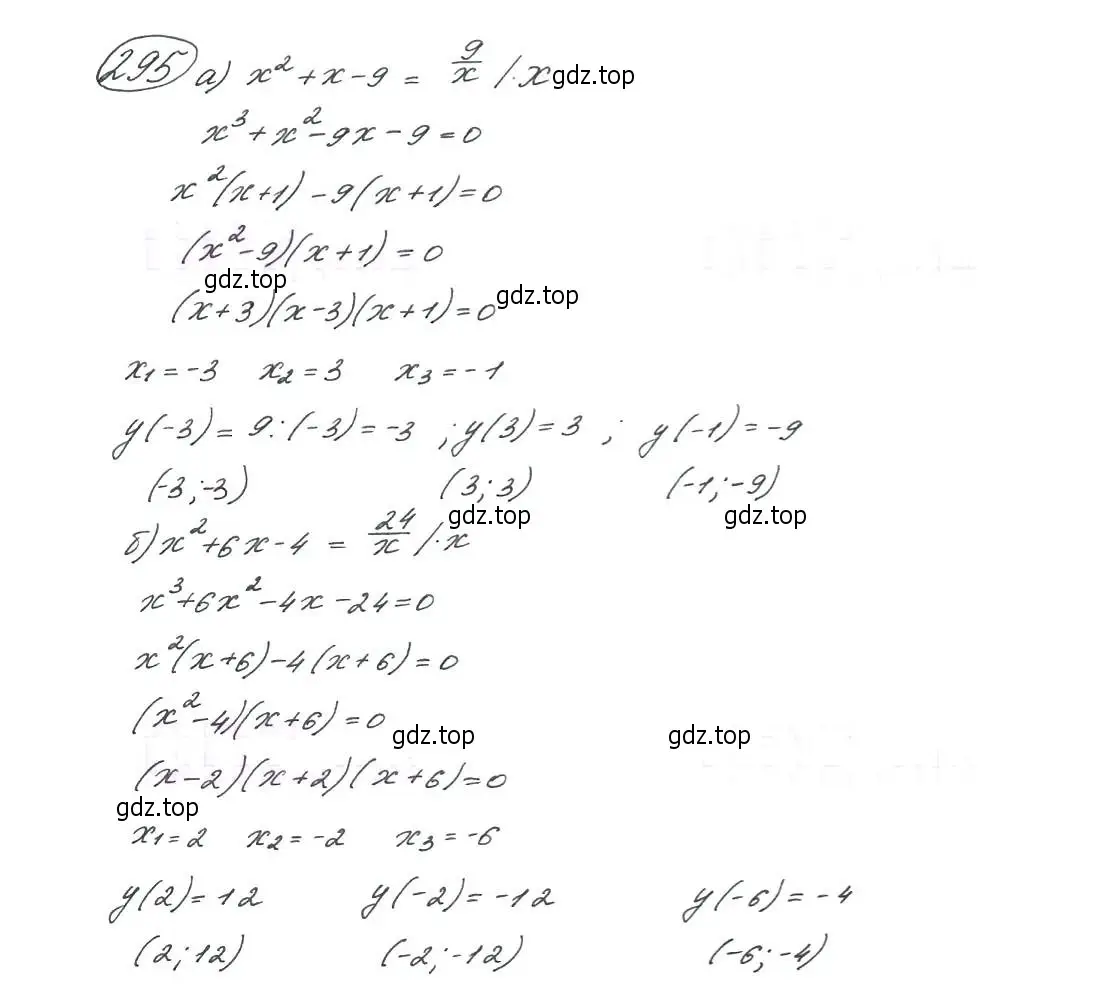 295 а) x² + x - 9 = 9/x /·x gdz.top
x³ + x² - 9x - 9 = 0
x²(x+1) - 9(x+1) = 0
(x² - 9)(x + 1) = 0
gdz.top gdz.top
(x+3)(x-3)(x+1) = 0
x₁ = -3 x₂ = 3 x₃ = -1
y(-3) = 9:(-3) = -3 ; y(3) = 3 ; y(-1) = -9
(-3;-3) (3;3) (-1;-9)
gdz.top gdz.top
б) x² + 6x - 4 = 24/x /·x
x³ + 6x² - 4x - 24 = 0
x²(x+6) - 4(x+6) = 0
(x² - 4)(x+6) = 0
gdz.top gdz.top
(x-2)(x+2)(x+6) = 0
gdz.top
x₁ = 2 x₂ = -2 x₃ = -6
y(2) = 12 y(-2) = -12 y(-6) = -4
(2;12) (-2;-12) (-6;-4)